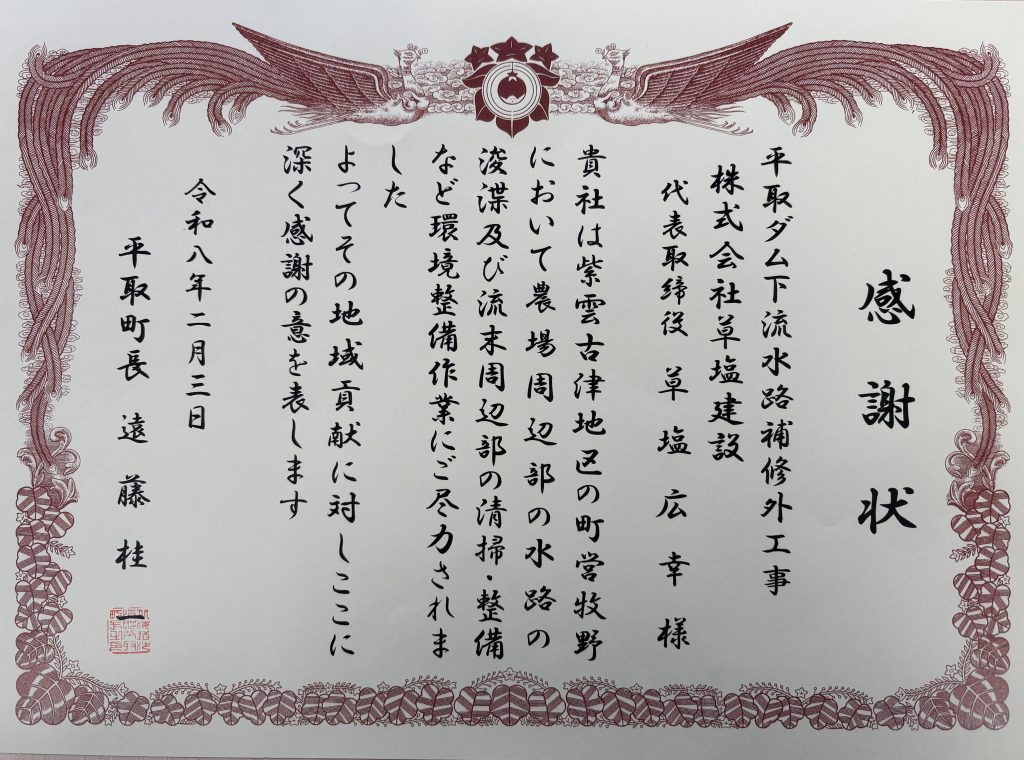 感謝状
平取ダム下流水路補修外工事
株式会社草塩建設
代表取締役 草塩広幸様
貴社は紫雲古津地区の町営牧野
において農場周辺部の水路の
浚渫及び流末周辺部の清掃・整備
など環境整備作業にご尽力されま
した
よってその地域貢献に対しここに
深く感謝の意を表します
令和八年二月三日
平取町長 遠藤桂一